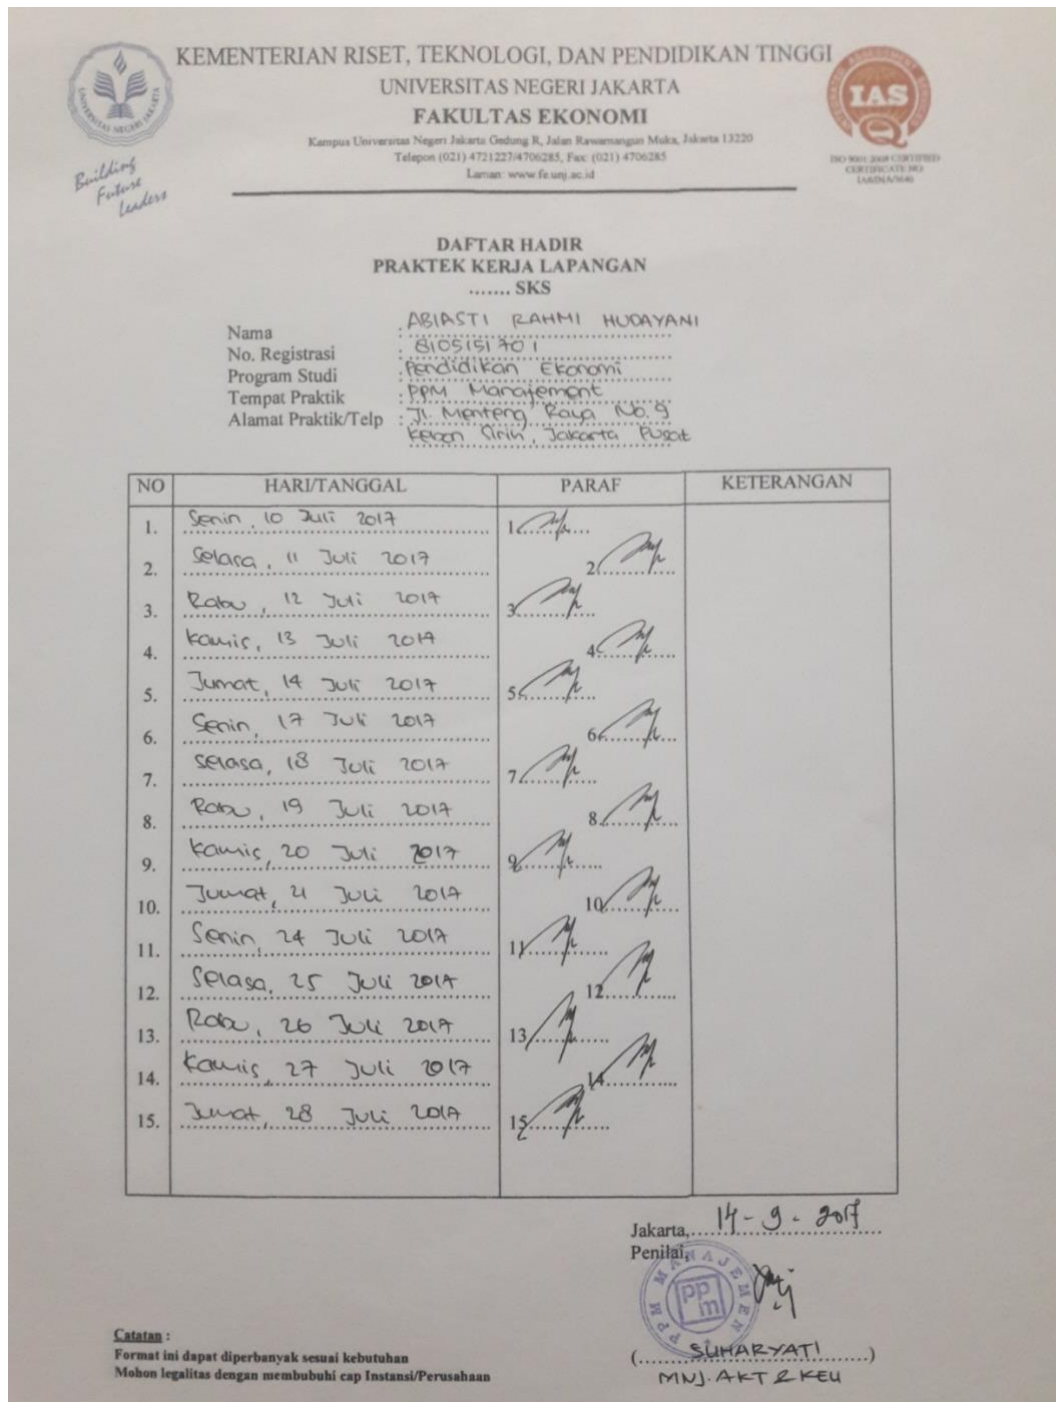 KEMENTERIAN RISET, TEKNOLOGI, DAN PENDIDIKAN TINGGI
UNIVERSITAS NEGERI JAKARTA
FAKULTAS EKONOMI
Kampus Universitas Negeri Jakarta Gedung R, Jalan Rawamangun Muka, Jakarta 13220
Telepon (021) 4721227/4706285, Fax: (021) 4706285
Laman: www.fe.unj.ac.id
UNIVERSITAS NEGERI JAKARTA
Building
Future
Leaders
IAS
ISO 9001:2008 CERTIFIED
CERTIFICATE NO:
DAFTAR HADIR
PRAKTEK KERJA LAPANGAN
....... SKS
Nama : ABIASTI RAHMI HUDAYANI
No. Registrasi : 8105151701
Program Studi : Pendidikan Ekonomi
Tempat Praktik : PPM Manajement
Alamat Praktik/Telp : Jl. Menteng Raya No. 9
Kebon Sirih, Jakarta Pusat
NO HARI/TANGGAL PARAF KETERANGAN
1. Senin, 10 Juli 2017 1.
2. Selasa, 11 Juli 2017 2.
3. Rabu, 12 Juli 2017 3.
4. Kamis, 13 Juli 2017 4.
5. Jumat, 14 Juli 2017 5.
6. Senin, 17 Juli 2017 6.
7. Selasa, 18 Juli 2017 7.
8. Rabu, 19 Juli 2017 8.
9. Kamis, 20 Juli 2017 9.
10. Jumat, 21 Juli 2017 10.
11. Senin, 24 Juli 2017 11.
12. Selasa, 25 Juli 2017 12.
13. Rabu, 26 Juli 2017 13.
14. Kamis, 27 Juli 2017 14.
15. Jumat, 28 Juli 2017 15.
Jakarta, 14-9-2017
Penilai,
PPM MANAJEMEN
ppm
(SUHARYATI)
MNJ. AKT & KEU
Catatan :
Format ini dapat diperbanyak sesuai kebutuhan
Mohon legalitas dengan membubuhi cap Instansi/Perusahaan